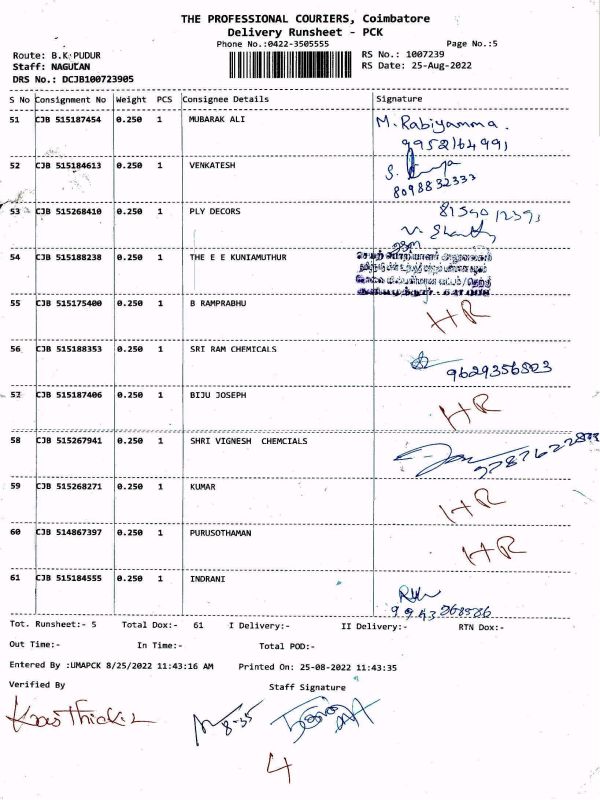 THE PROFESSIONAL COURIERS, Coimbatore
Delivery Runsheet - PCK
Phone No.:0422-3505555
Page No.:5
Route: B.K.PUDUR
RS No.: 1007239
Staff: NAGULAN
RS Date: 25-Aug-2022
DRS No.: DCJB100723905
S No Consignment No Weight PCS Consignee Details Signature
51 CJB 515187454 0.250 1 MUBARAK ALI M. Rabiyamma.
9952164991
52 CJB 515184613 0.250 1 VENKATESH S.
8098832333
53 CJB 515268410 0.250 1 PLY DECORS
54 CJB 515188238 0.250 1 THE E E KUNIAMUTHUR
55 CJB 515175400 0.250 1 B RAMPRABHU HR
56 CJB 515188353 0.250 1 SRI RAM CHEMICALS 9629356803
57 CJB 515187406 0.250 1 BIJU JOSEPH HR
58 CJB 515267941 0.250 1 SHRI VIGNESH CHEMCIALS
59 CJB 515268271 0.250 1 KUMAR HR
60 CJB 514867397 0.250 1 PURUSOTHAMAN HR
61 CJB 515184555 0.250 1 INDRANI
9943268586
Tot. Runsheet:- 5 Total Dox:- 61 I Delivery:- II Delivery:- RTN Dox:-
Out Time:- In Time:- Total POD:-
Entered By :UMAPCK 8/25/2022 11:43:16 AM Printed On: 25-08-2022 11:43:35
Verified By Staff Signature
8-35
4